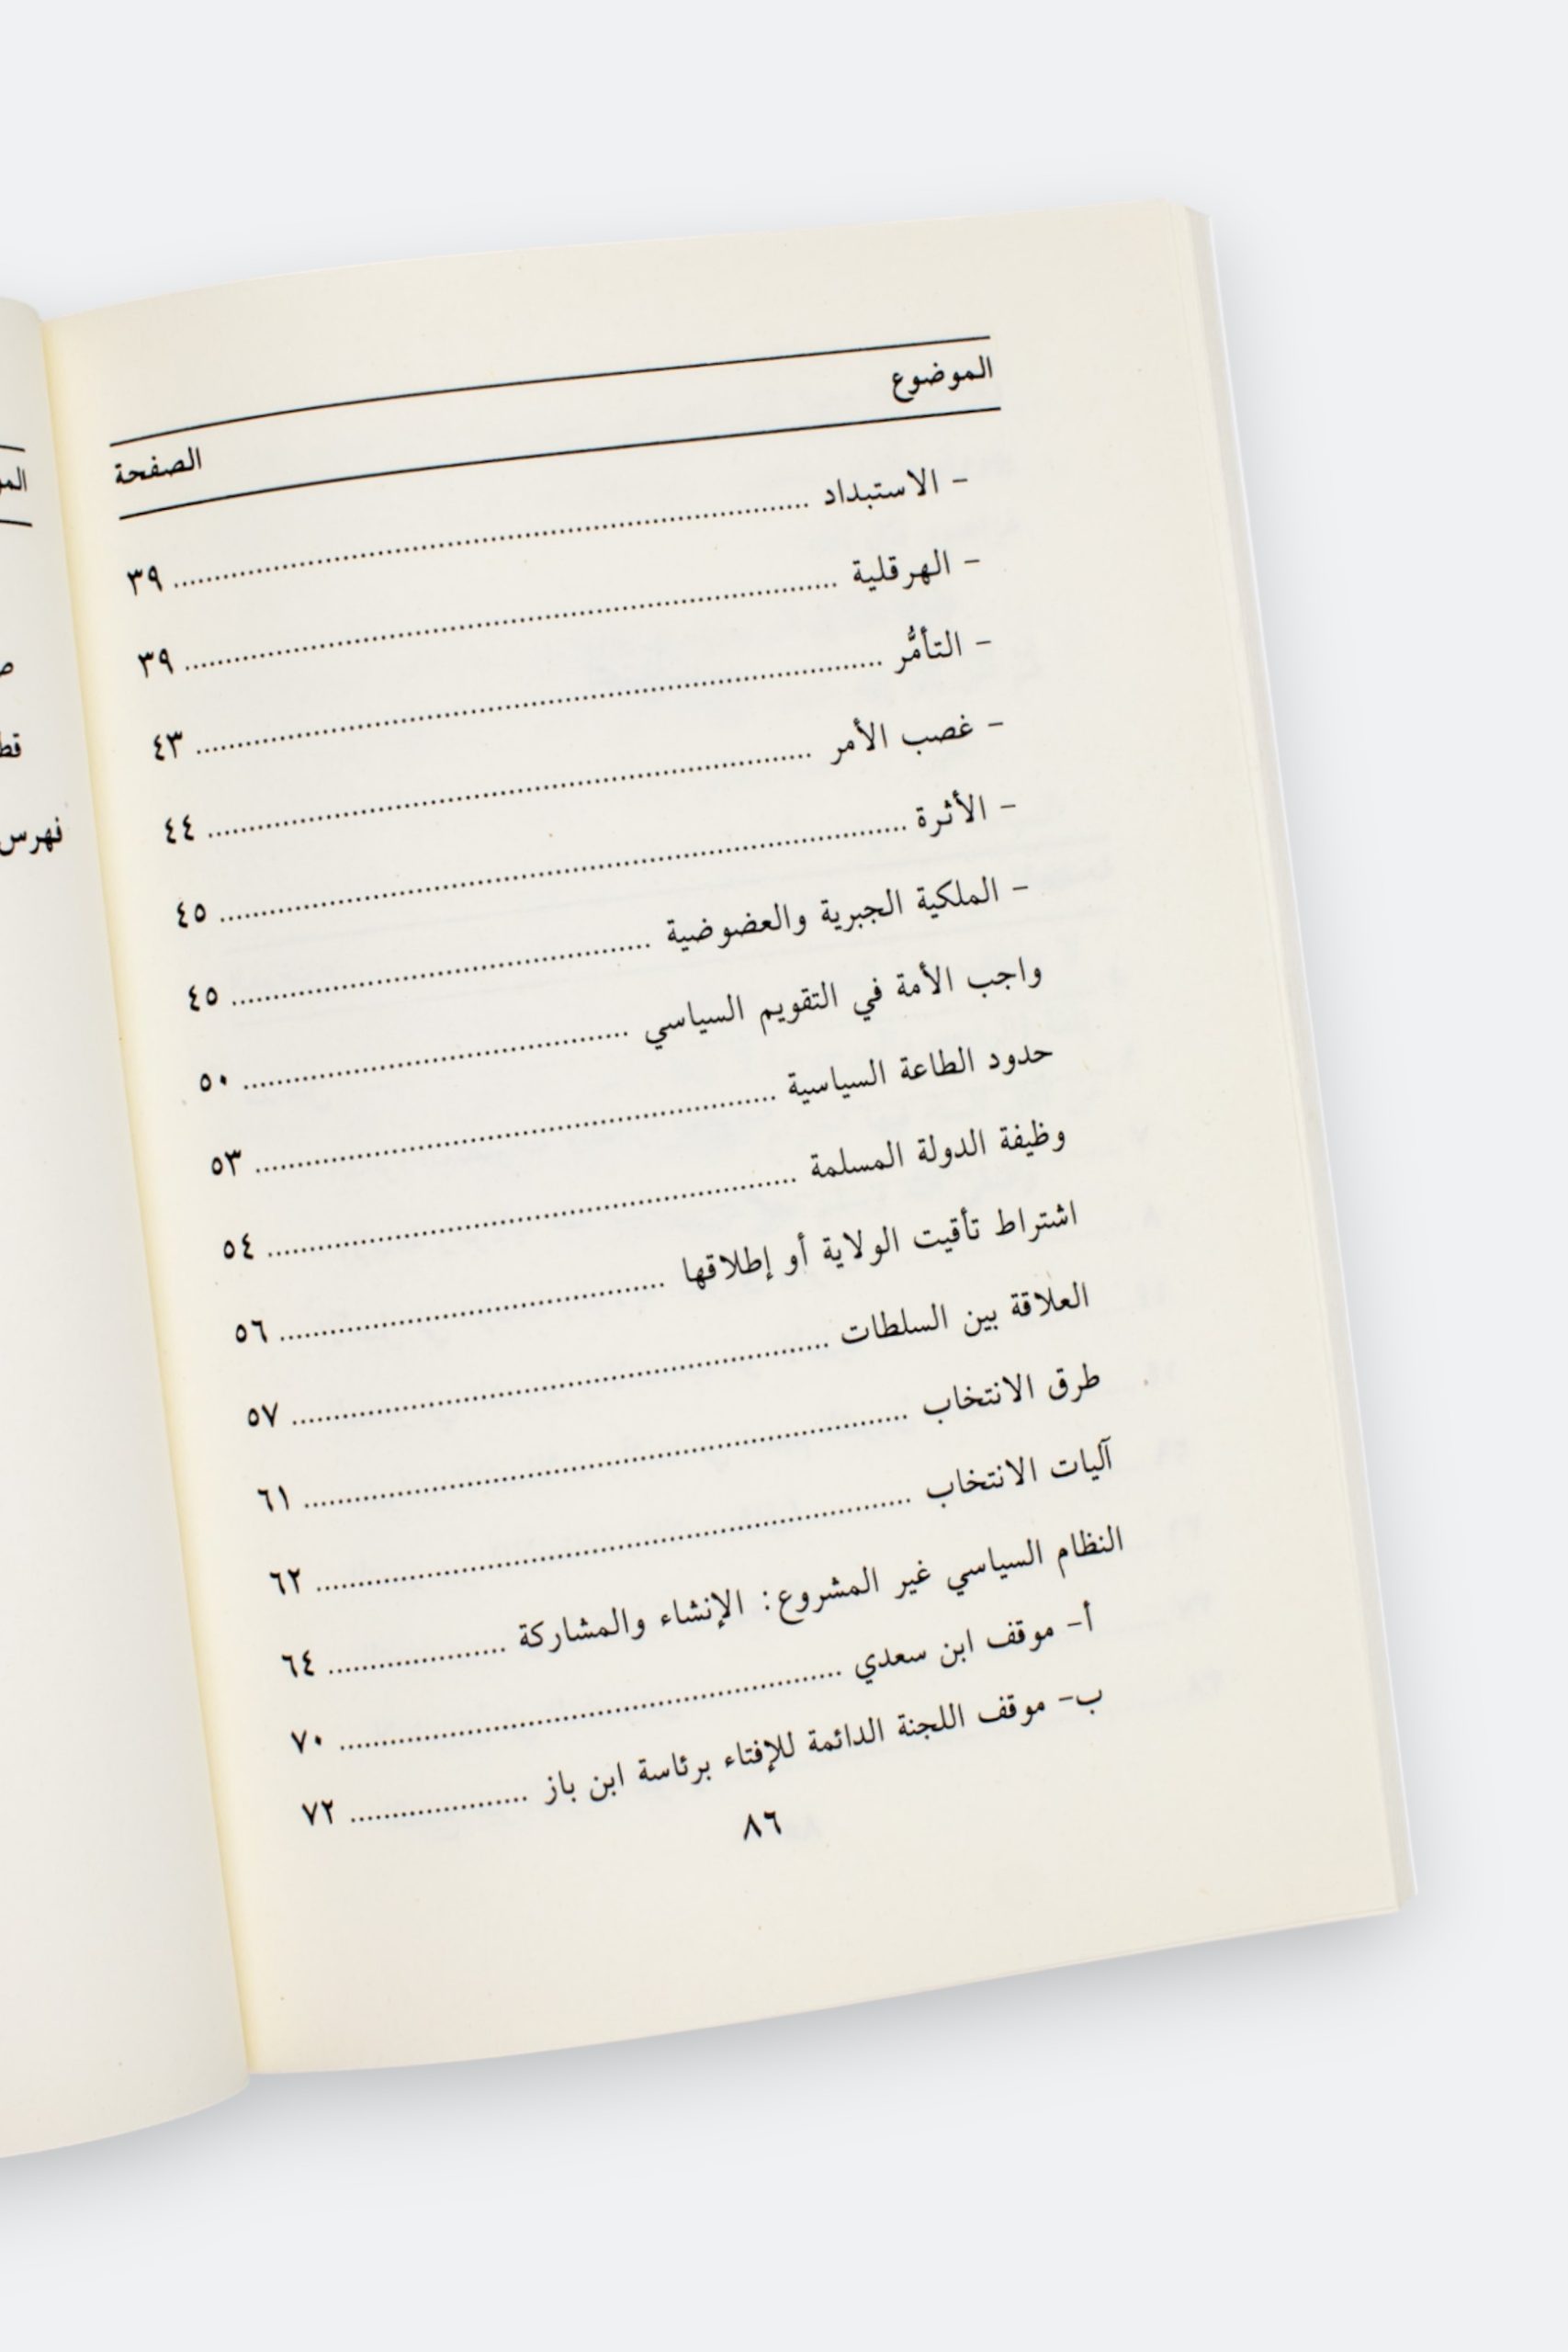 الموضوع الصفحة
- الاستبداد ................ ٣٩
- الهرقلية ................ ٣٩
- التأمُّر ................ ٤٣
- غصب الأمر ................ ٤٤
- الأثرة ................ ٤٥
- الملكية الجبرية والعضوضية ................ ٤٥
واجب الأمة في التقويم السياسي ................ ٥٠
حدود الطاعة السياسية ................ ٥٣
وظيفة الدولة المسلمة ................ ٥٤
اشتراط تأقيت الولاية أو إطلاقها ................ ٥٦
العلاقة بين السلطات ................ ٥٧
طرق الانتخاب ................ ٦١
آليات الانتخاب ................ ٦٢
النظام السياسي غير المشروع: الإنشاء والمشاركة ................ ٦٤
أ- موقف ابن سعدي ................ ٧٠
ب- موقف اللجنة الدائمة للإفتاء برئاسة ابن باز ................ ٧٢
٨٦
فهرس